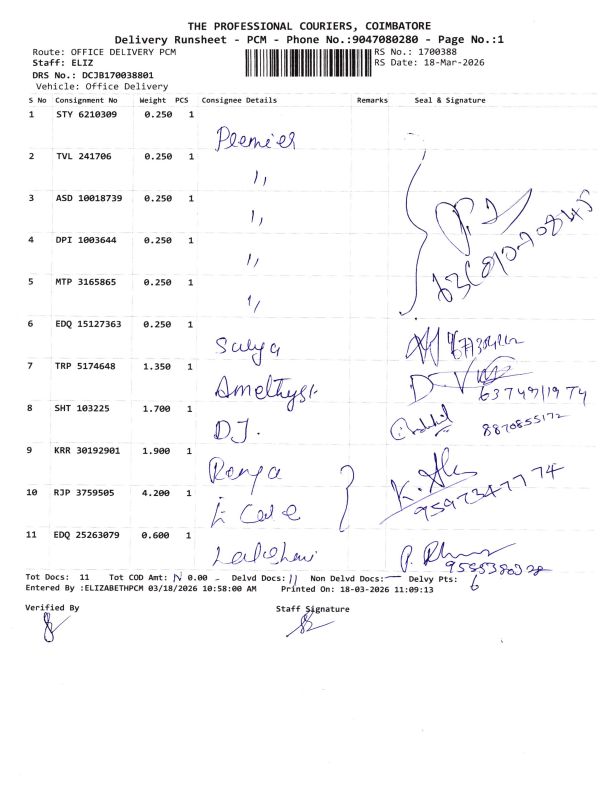 THE PROFESSIONAL COURIERS, COIMBATORE
Delivery Runsheet - PCM - Phone No.:9047080280 - Page No.:1
Route: OFFICE DELIVERY PCM RS No.: 1700388
Staff: ELIZ RS Date: 18-Mar-2026
DRS No.: DCJB170038801
Vehicle: Office Delivery
S No Consignment No Weight PCS Consignee Details Remarks Seal & Signature
1 STY 6210309 0.250 1
Premier
2 TVL 241706 0.250 1
,,
3 ASD 10018739 0.250 1
,,
4 DPI 1003644 0.250 1
,,
5 MTP 3165865 0.250 1
,,
6 EDQ 15127363 0.250 1
Satya
7 TRP 5174648 1.350 1
Amethyst
6374971974
8 SHT 103225 1.700 1
D.J.
8870855172
9 KRR 30192901 1.900 1
Ramya
10 RJP 3759505 4.200 1
9597347774
11 EDQ 25263079 0.600 1
Lakshmi
Tot Docs: 11 Tot COD Amt: N 0.00 - Delvd Docs: 11 Non Delvd Docs: — Delvy Pts: 6
Entered By :ELIZABETHPCM 03/18/2026 10:58:00 AM Printed On: 18-03-2026 11:09:13
Verified By Staff Signature